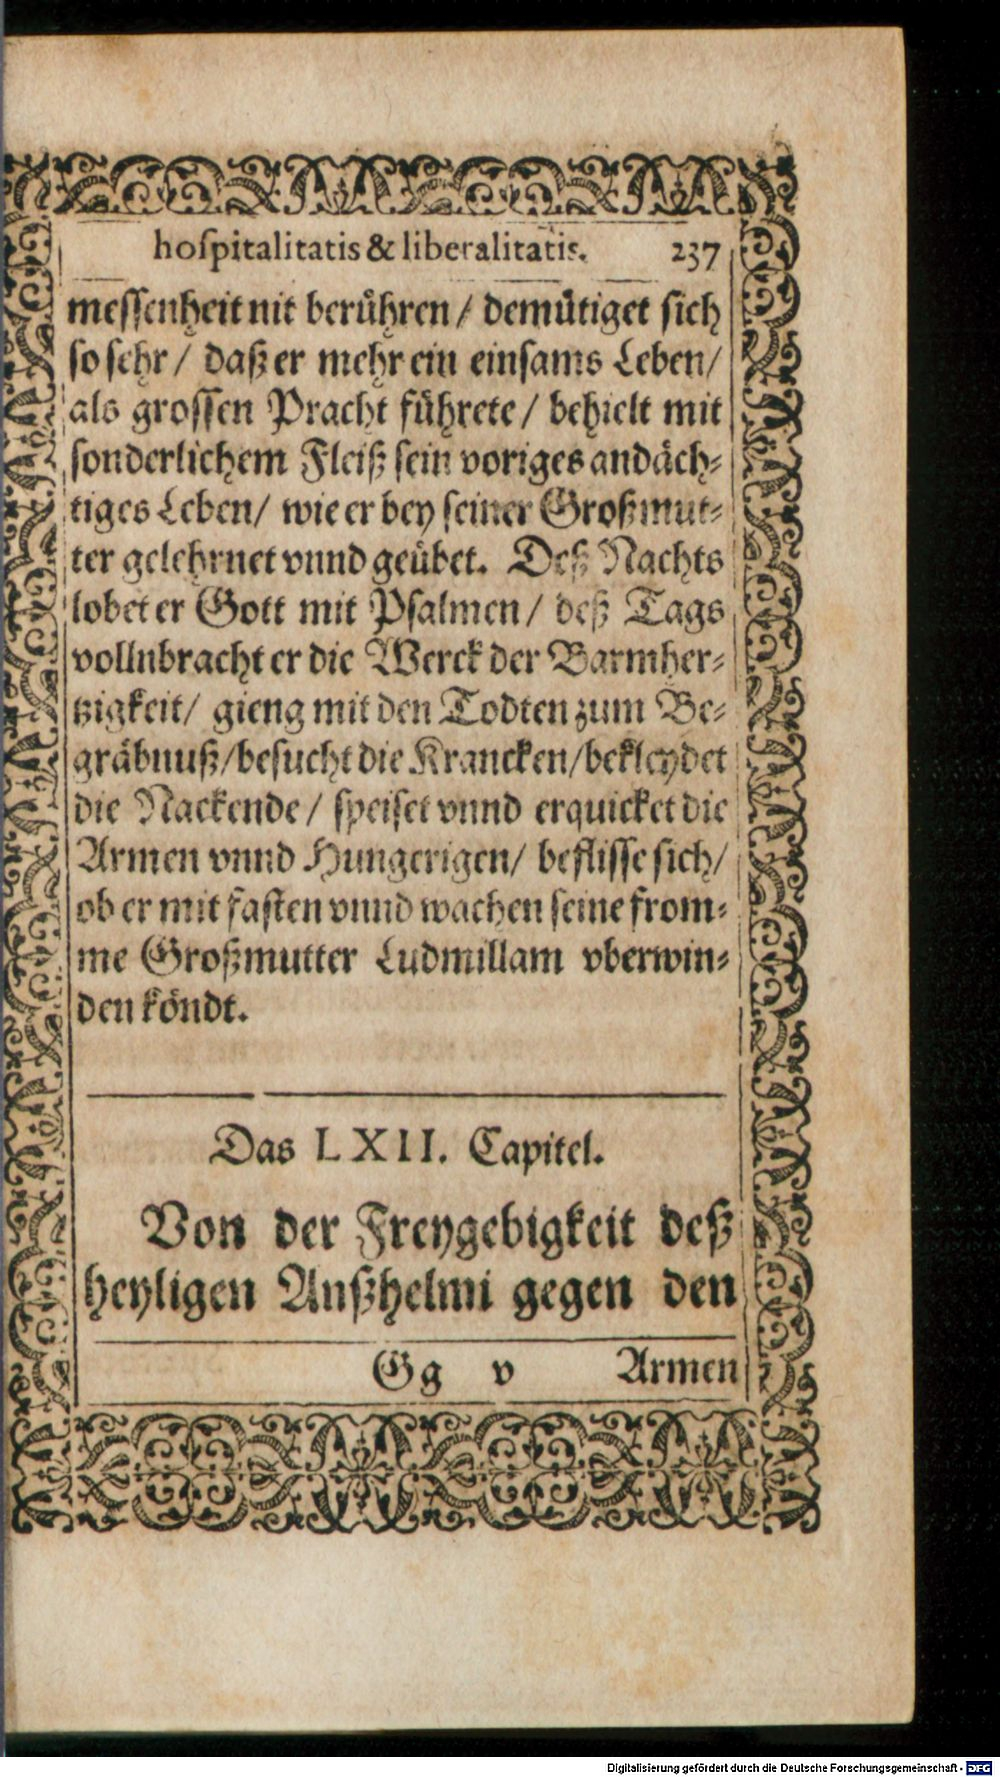 hoſpitalitatis & liberalitatis. 237
meſſenheit nit berühren / demütiget ſich
ſo ſehr / daß er mehr ein einſams Leben /
als groſſen Pracht führete / behielt mit
ſonderlichem Fleiß ſein voriges andäch⸗
tiges Leben / wie er bey ſeiner Großmut⸗
ter gelehrnet vnnd geübet. Deß Nachts
lobet er Gott mit Pſalmen / deß Tags
vollnbracht er die Werck der Barmher⸗
tzigkeit / gieng mit den Todten zum Be⸗
gräbnuß / beſucht die Krancken / bekleydet
die Nackende / ſpeiſet vnnd erquicket die
Armen vnnd Hungerigen / befliſſe ſich /
ob er mit faſten vnnd wachen ſeine from⸗
me Großmutter Ludmillam vberwin⸗
den köndt.
Das LXII. Capitel.
Von der Freygebigkeit deß
heyligen Anßhelmi gegen den
Gg v Armen
Digitalisierung gefördert durch die Deutsche Forschungsgemeinschaft - DFG